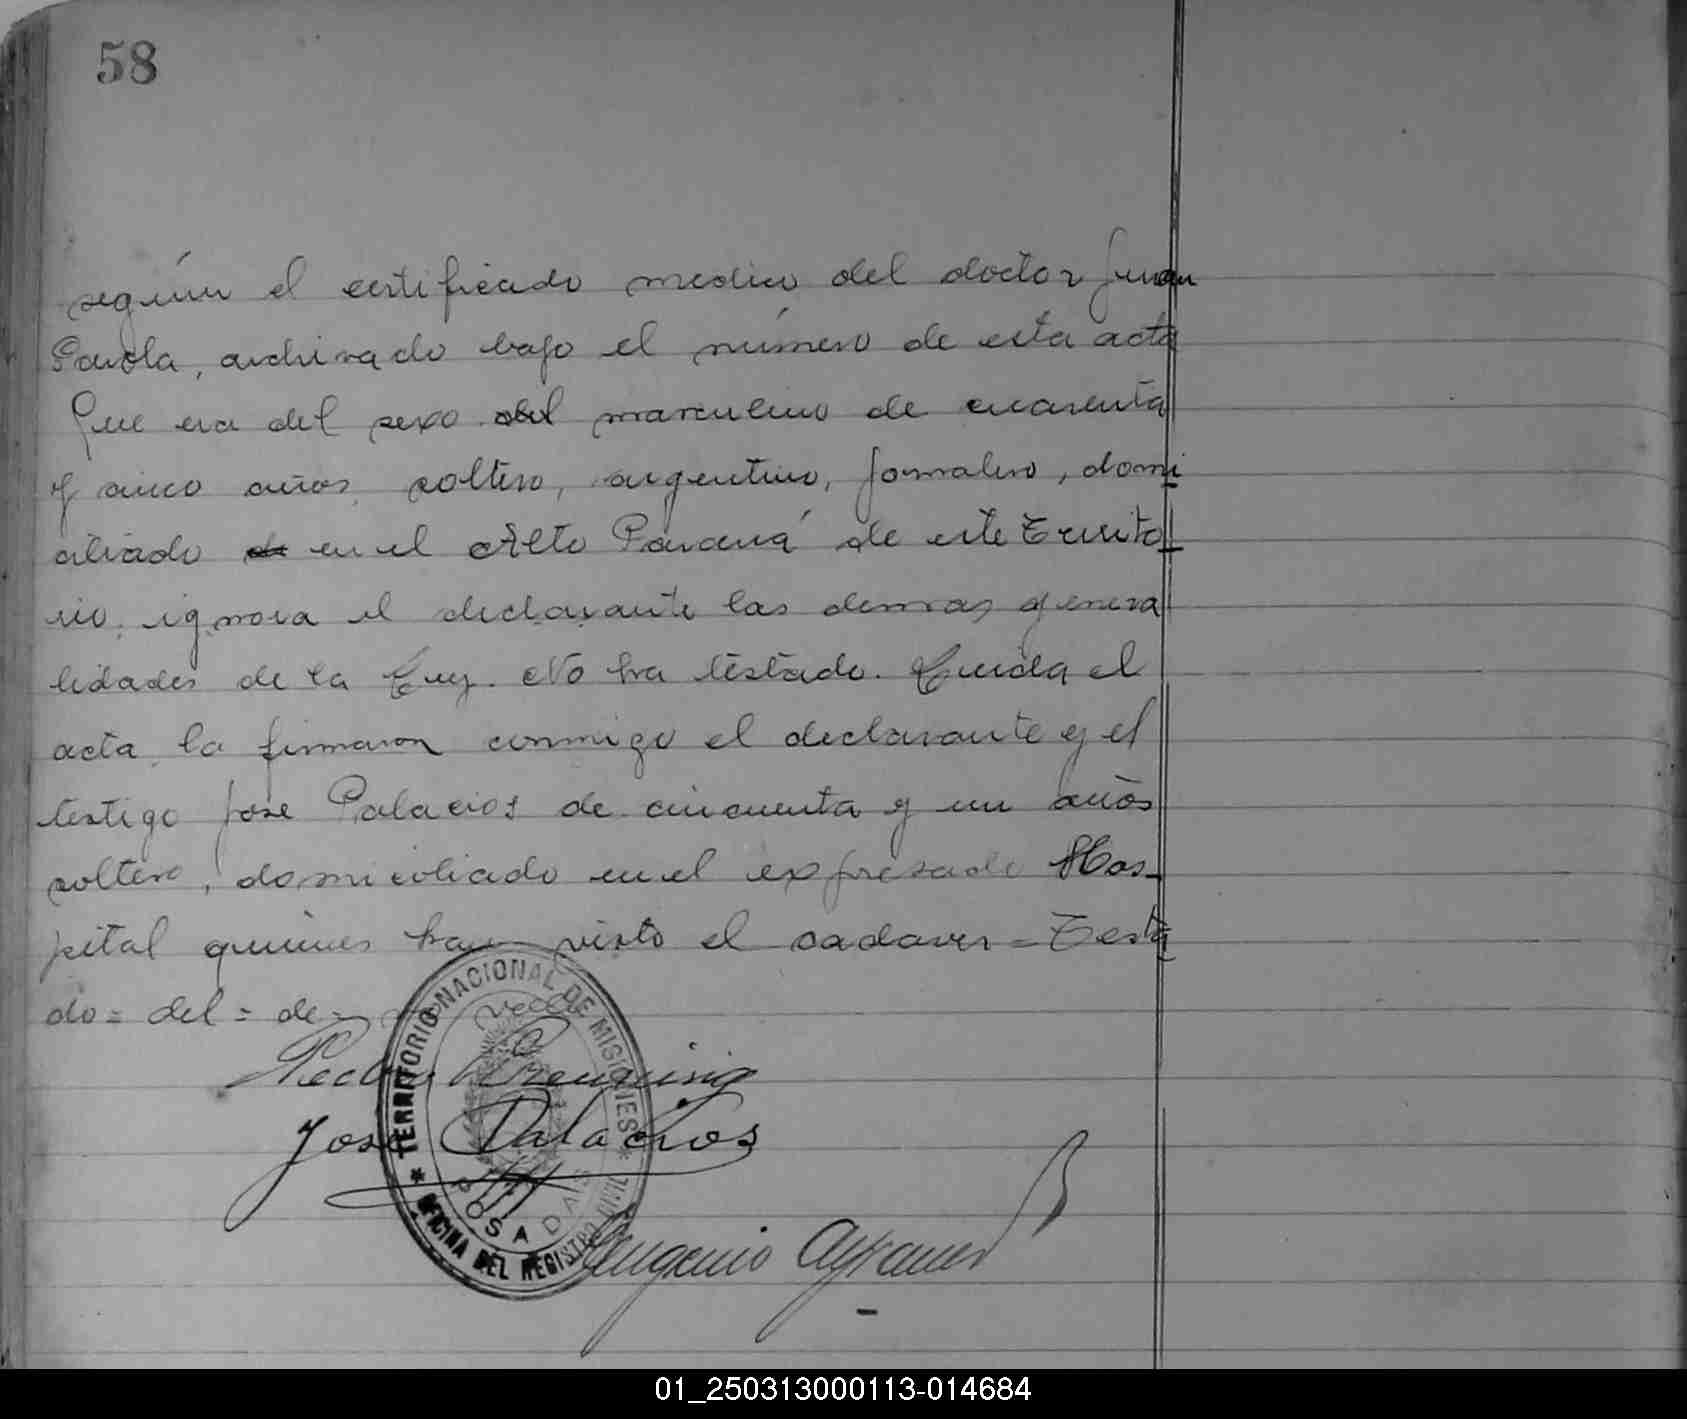 58
según el certificado medico del doctor Juan
Parola, archivado bajo el número de esta acta
Que era del sexo del masculino de cuarenta
y cinco años, soltero, argentino, jornalero, domi
ciliado de en el Alto Paraná de este Territo
rio, ignora el declarante las demas genera
lidades de la Ley. No ha testado. Leida el
acta, la firmaron conmigo el declarante y el
testigo José Palacios de cincuenta y un años
soltero, domiciliado en el expresado Hos-
pital quienes han visto el cadaver = Testa
do = del = de =
vale
Pedro
José Palacios
Eugenio
TERRITORIO NACIONAL DE MISIONES
OFICINA DEL REGISTRO CIVIL
POSADAS
01_250313000113-014684